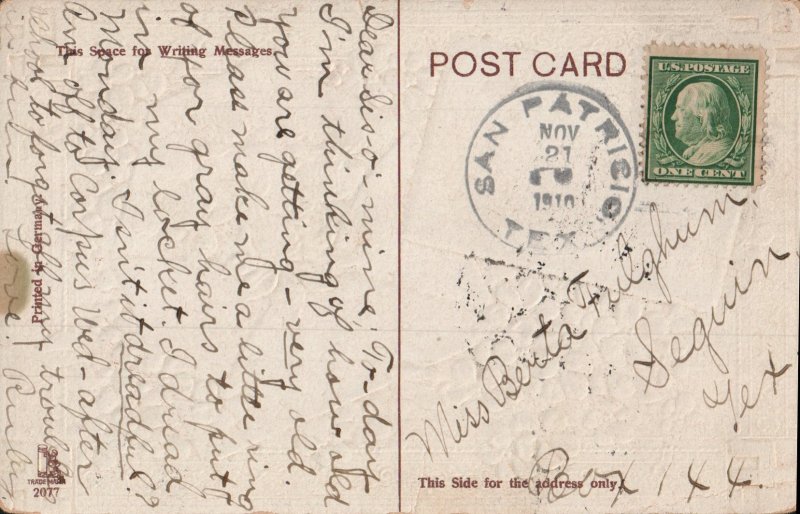 This Space for Writing Messages.
Dear Sis-o'-mine, To-day
I'm thinking of how old
you are getting - very old.
Please make me a little ring
of for gray hairs to put
in my locket. I dread
Monday. Isn't it dreadful?
Am off to Corpus Wed - after
to forget my troubles
Love. Ruby
Printed in Germany
TRADE MARK
2077
POST CARD
SAN PATRICIO,
NOV
21
1910
TEX.
U.S. POSTAGE
ONE CENT
Miss Berta Fulghum.
Seguin
Tex
Box 144.
This Side for the address only.